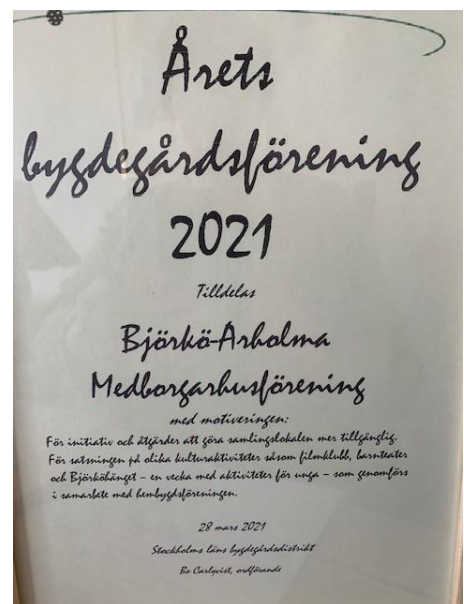 Årets
bygdegårdsförening
2021
Tilldelas
Björkö-Arholma
Medborgarhusförening
med motiveringen:
För initiativ och åtgärder att göra samlingslokalen mer tillgänglig.
För satsningen på olika kulturaktiviteter såsom filmklubb, barnteater
och Björköhänget – en vecka med aktiviteter för unga – som genomförs
i samarbete med hembygdsföreningen.
28 mars 2021
Stockholms läns bygdegårdsdistrikt
Bo Carlqvist, ordförande